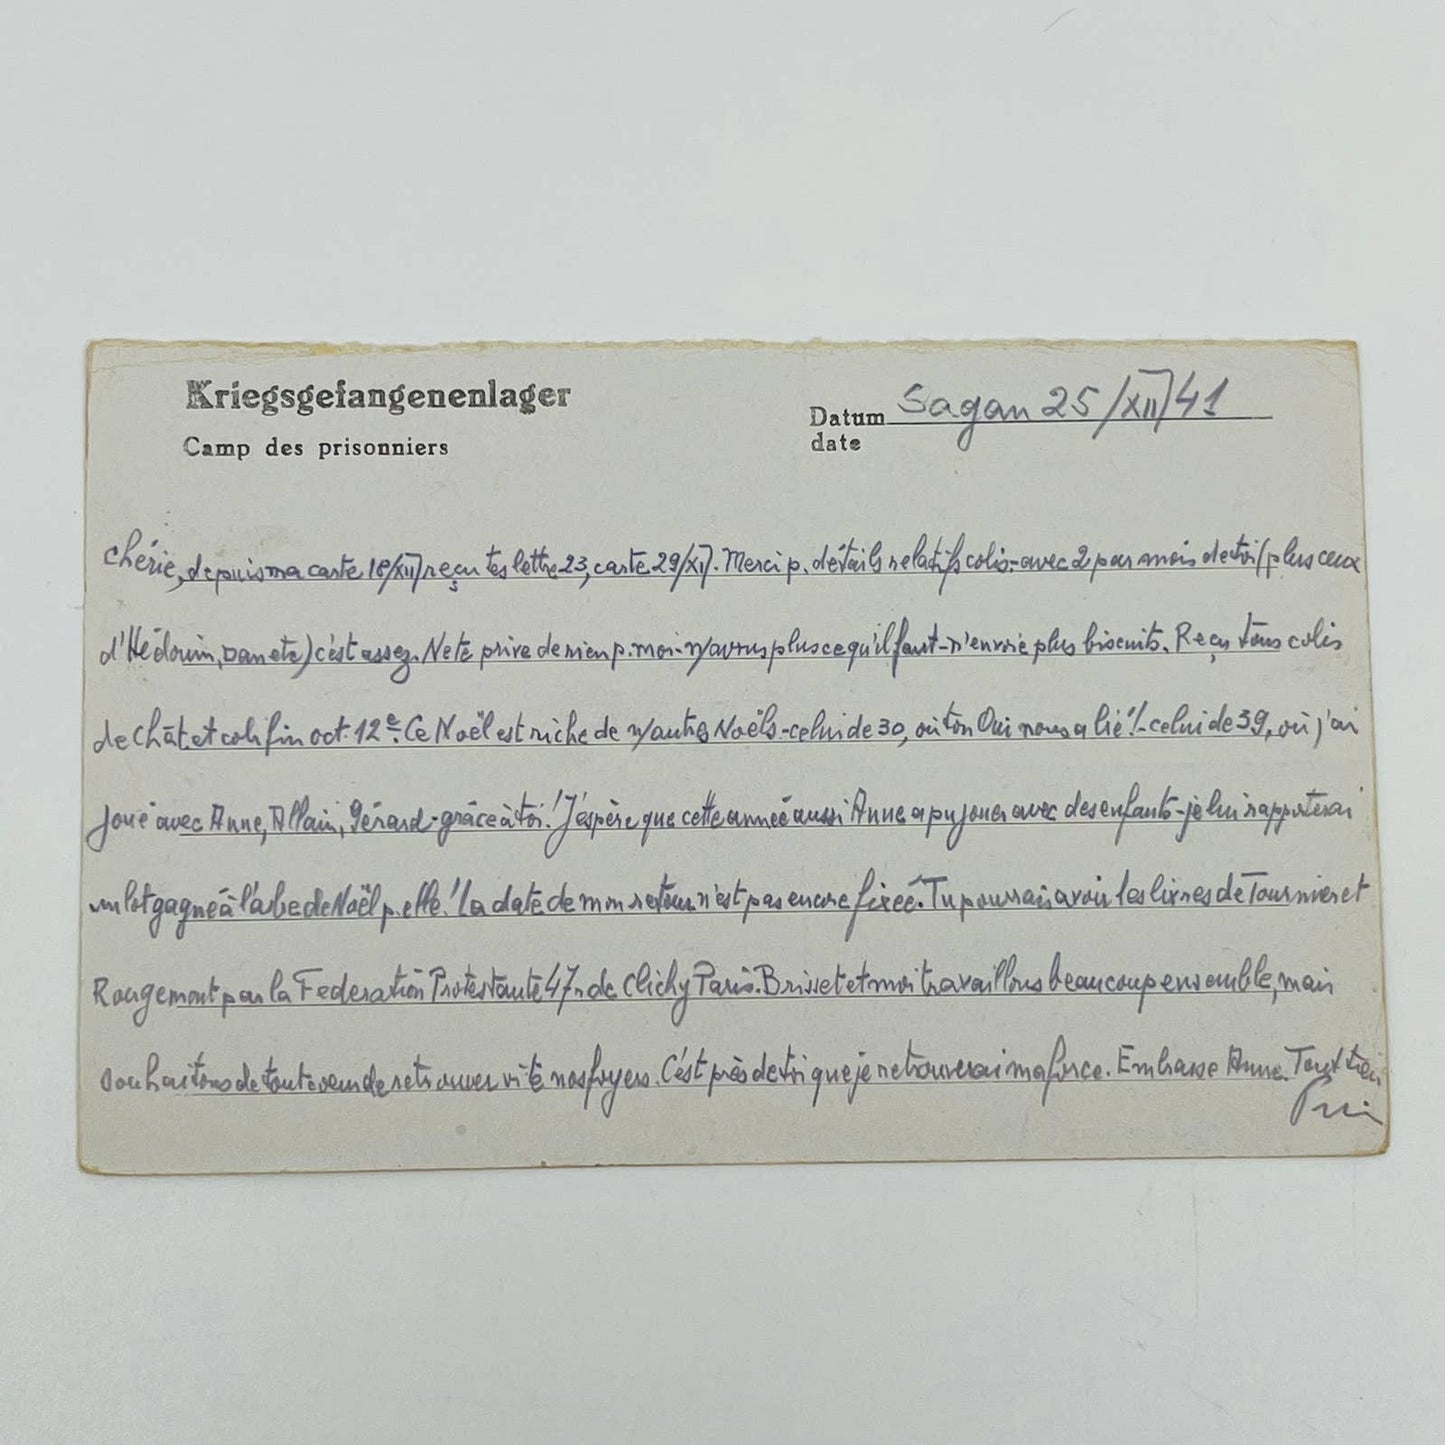 Kriegsgefangenenlager
Camp des prisonniers
Datum Sagan 25/XII/41
date
Chérie, depuis ma carte 18/XII reçu tes lettre 23, carte 29/XI. Merci p. détails relatifs colis - avec 2 par mois de toi (plus ceux
d'Hédouin, ) c'est assez. Ne te prive de rien p. moi - n/avons plus ce qu'il faut - n'envoie plus biscuits. Reçu tous colis
de Chât. et colis fin oct. 12e. Ce Noël est riche de n/autres Noëls - celui de 30, où ton Oui nous a lié! - celui de 39, où j'ai
joué avec Anne, Allain, Gérard - grâce à toi! J'espère que cette année aussi Anne a pu jouer avec des enfants - je lui rapporterai
un lot gagné à l'abe de Noël p. elle! La date de mon retour n'est pas encore fixée. Tu pourrais avoir les livres de Tournier et
Rougemont par la Federation Protestante 47 r. de Clichy Paris. Brisset et moi travaillons beaucoup ensemble, mais
souhaitons de tout coeur de retrouver vite nos foyers. C'est près de toi que je retrouverai ma force. Embrasse Anne. Tout tien